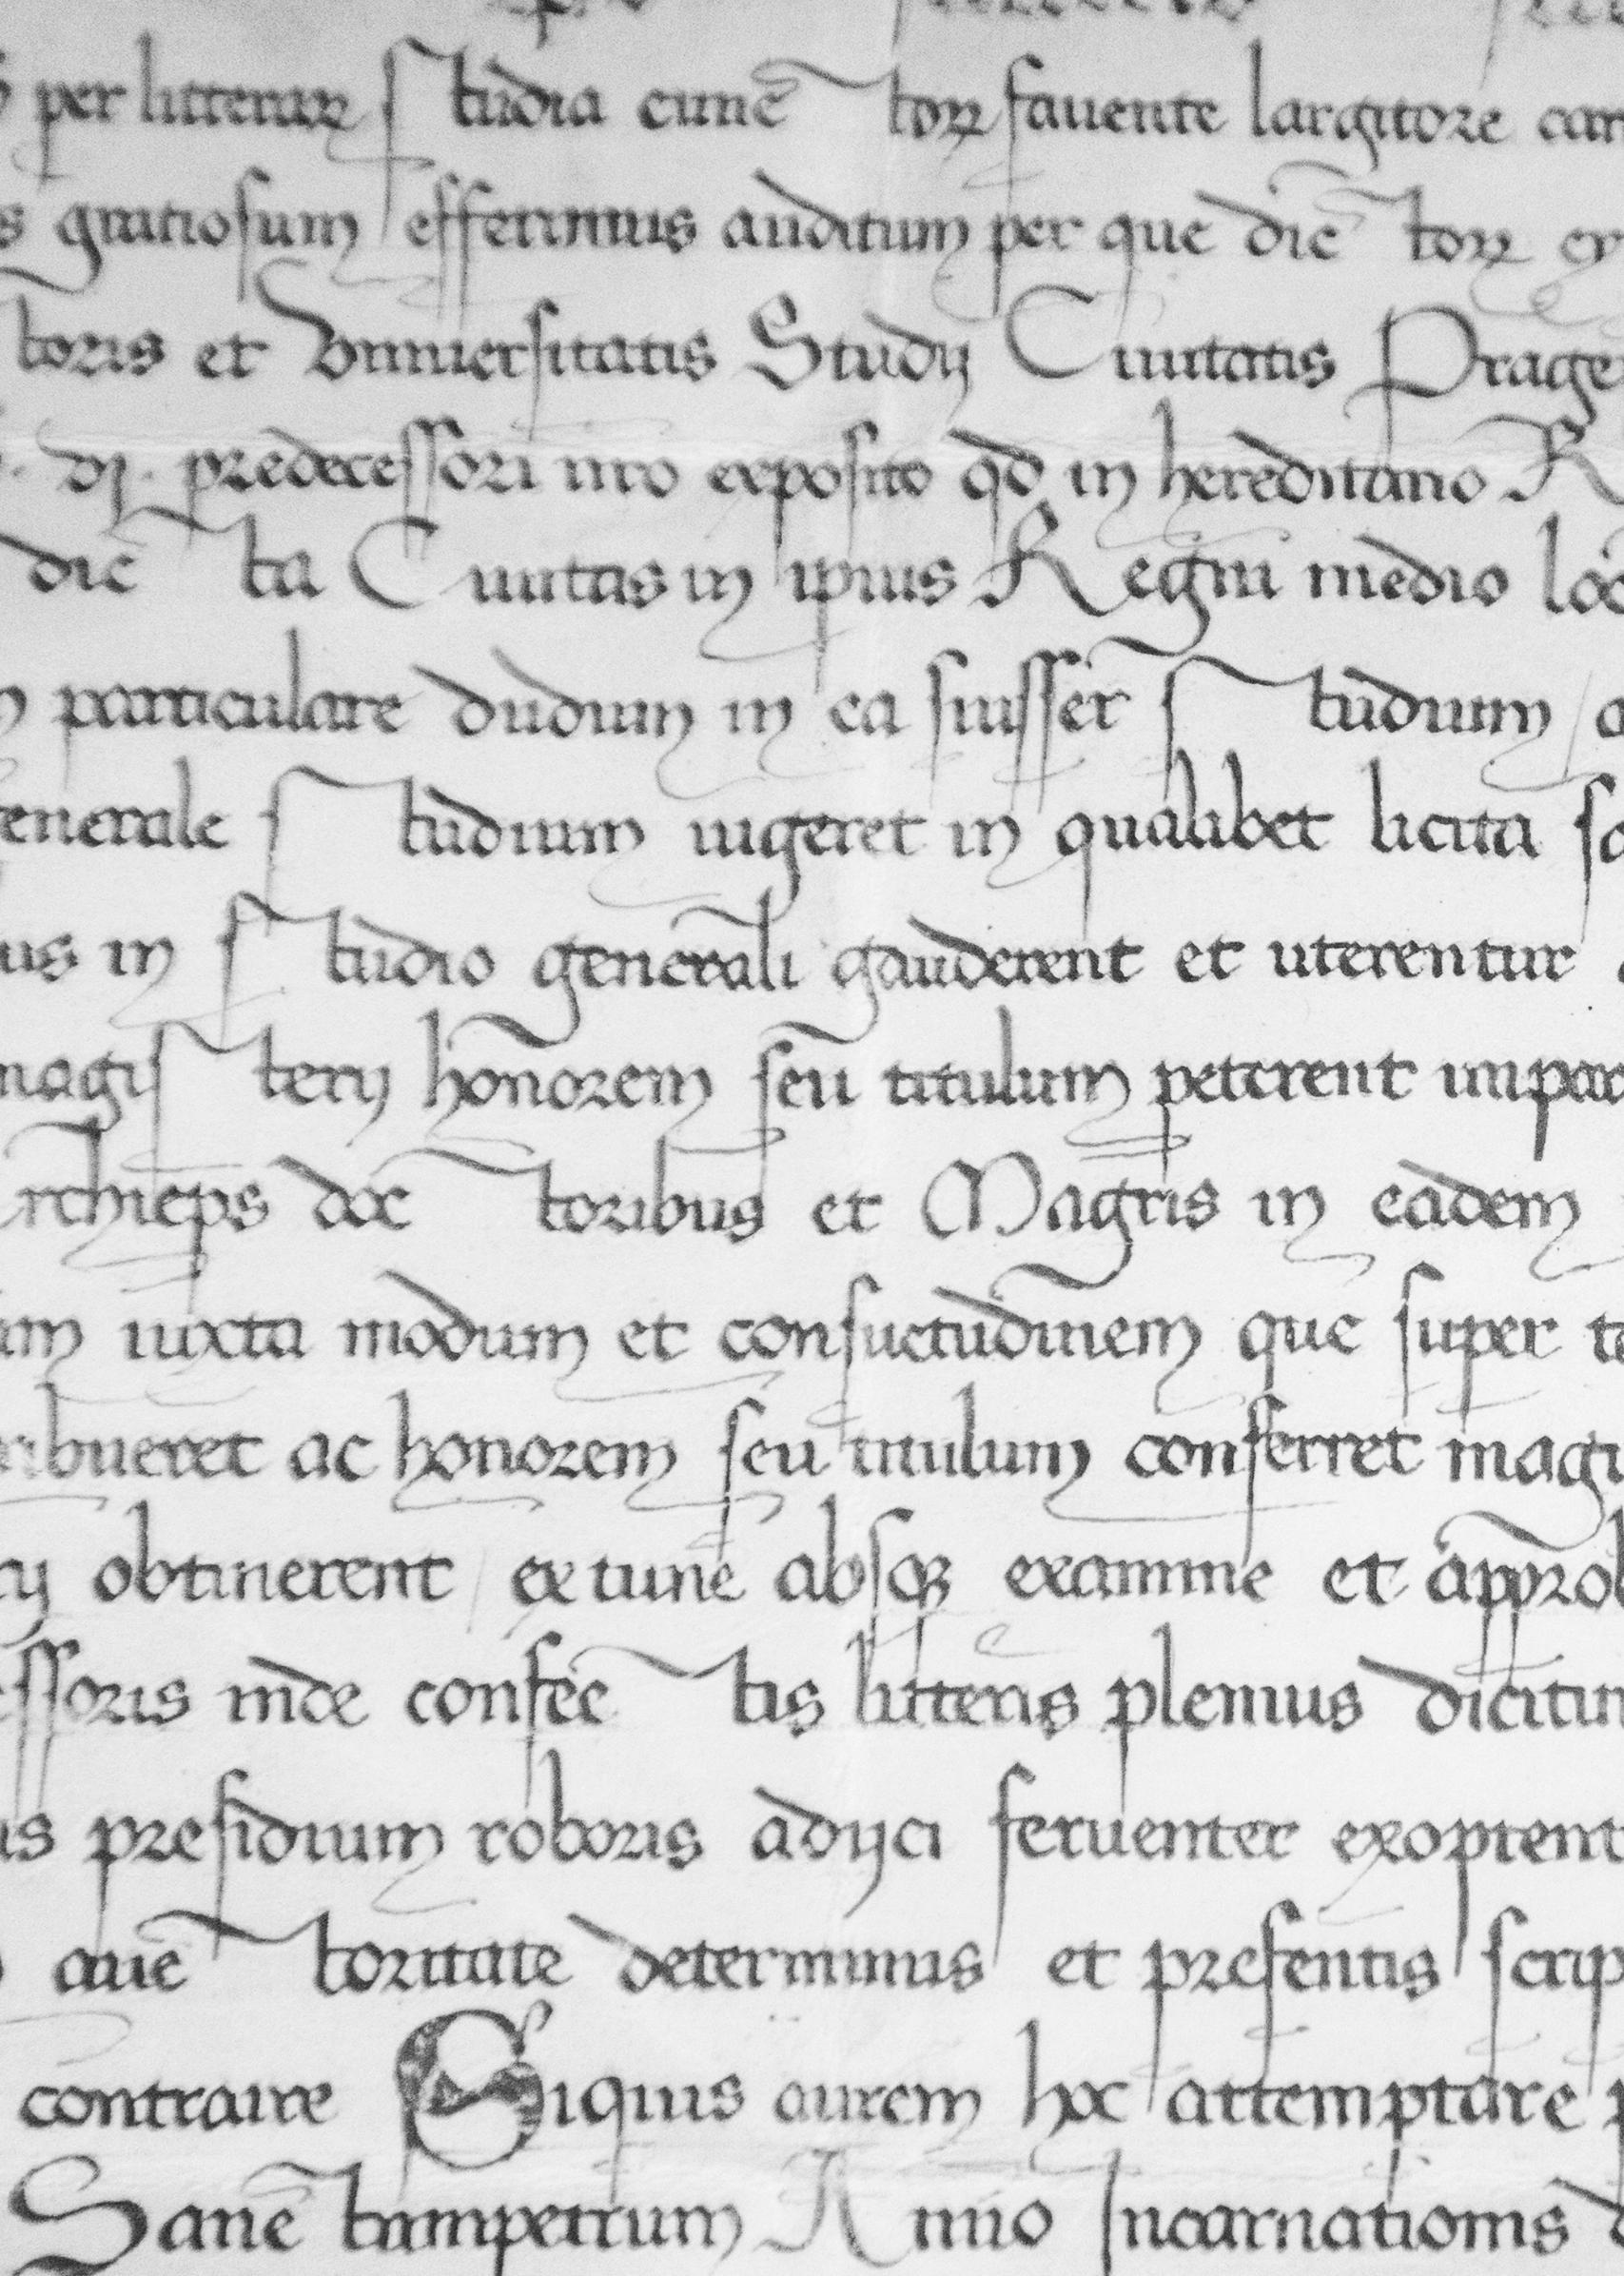 per litterarꝝ ſtudia cunc̄torꝝ fauente largitore
gratioſum efferimus auditum per que dic̄torꝝ
toris et Vniuerſitatis Studij Ciuitatis Prage
dij. predeceſſori nr̄o expoſito qd̄ in hereditario R
dic̄ta Ciuitas in ip̄ius Regni medio
particulare dudum in ea fuiſſet ſtudium
enerale ſtudium uigeret in qualibet licita
us in ſtudio generali gauderent et uterentur
magiſterij honorem ſeu titulum peterent impar
rchiep̄s doctoribus et Magr̄is in eadem
iuxta modum et conſuetudinem que ſuper
ibueret ac honorem ſeu titulum conferret magi
ij obtinerent / ex tunc abſqꝫ examine et approb
eſſoris inde confec̄tis litteris plenius dicitur
preſidium roboris adijci feruenter exoptent
auc̄toritate determinus et preſentis ſcrip
contraire Siquis autem hoc attemptare
Sanc̄tumpetrum Anno Incarnationis d